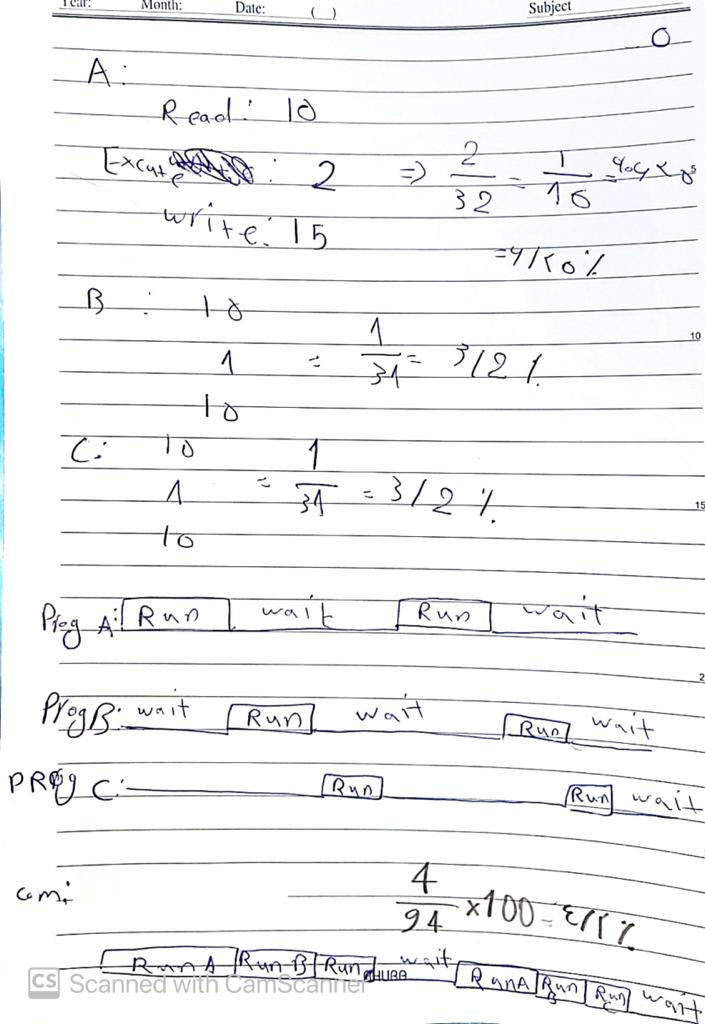 Year: Month: Date: ( ) Subject
A:
Read: 10
Excute : 2 => 2/32 = 1/16
write: 15
= ٦/٢٥ %
B : 10
1 = 1/31 = 3/2 %
10
C: 10
1 = 1/31 = 3/2 %
10
Prog A: Run wait Run wait
Prog B: wait Run wait Run wait
PROg C: Run Run wait
com:
4/94 x100 = ٤/٢ %
Run A Run B Run wait Run A Run B Run C wait
10
15
2
CS Scanned with CamScanner